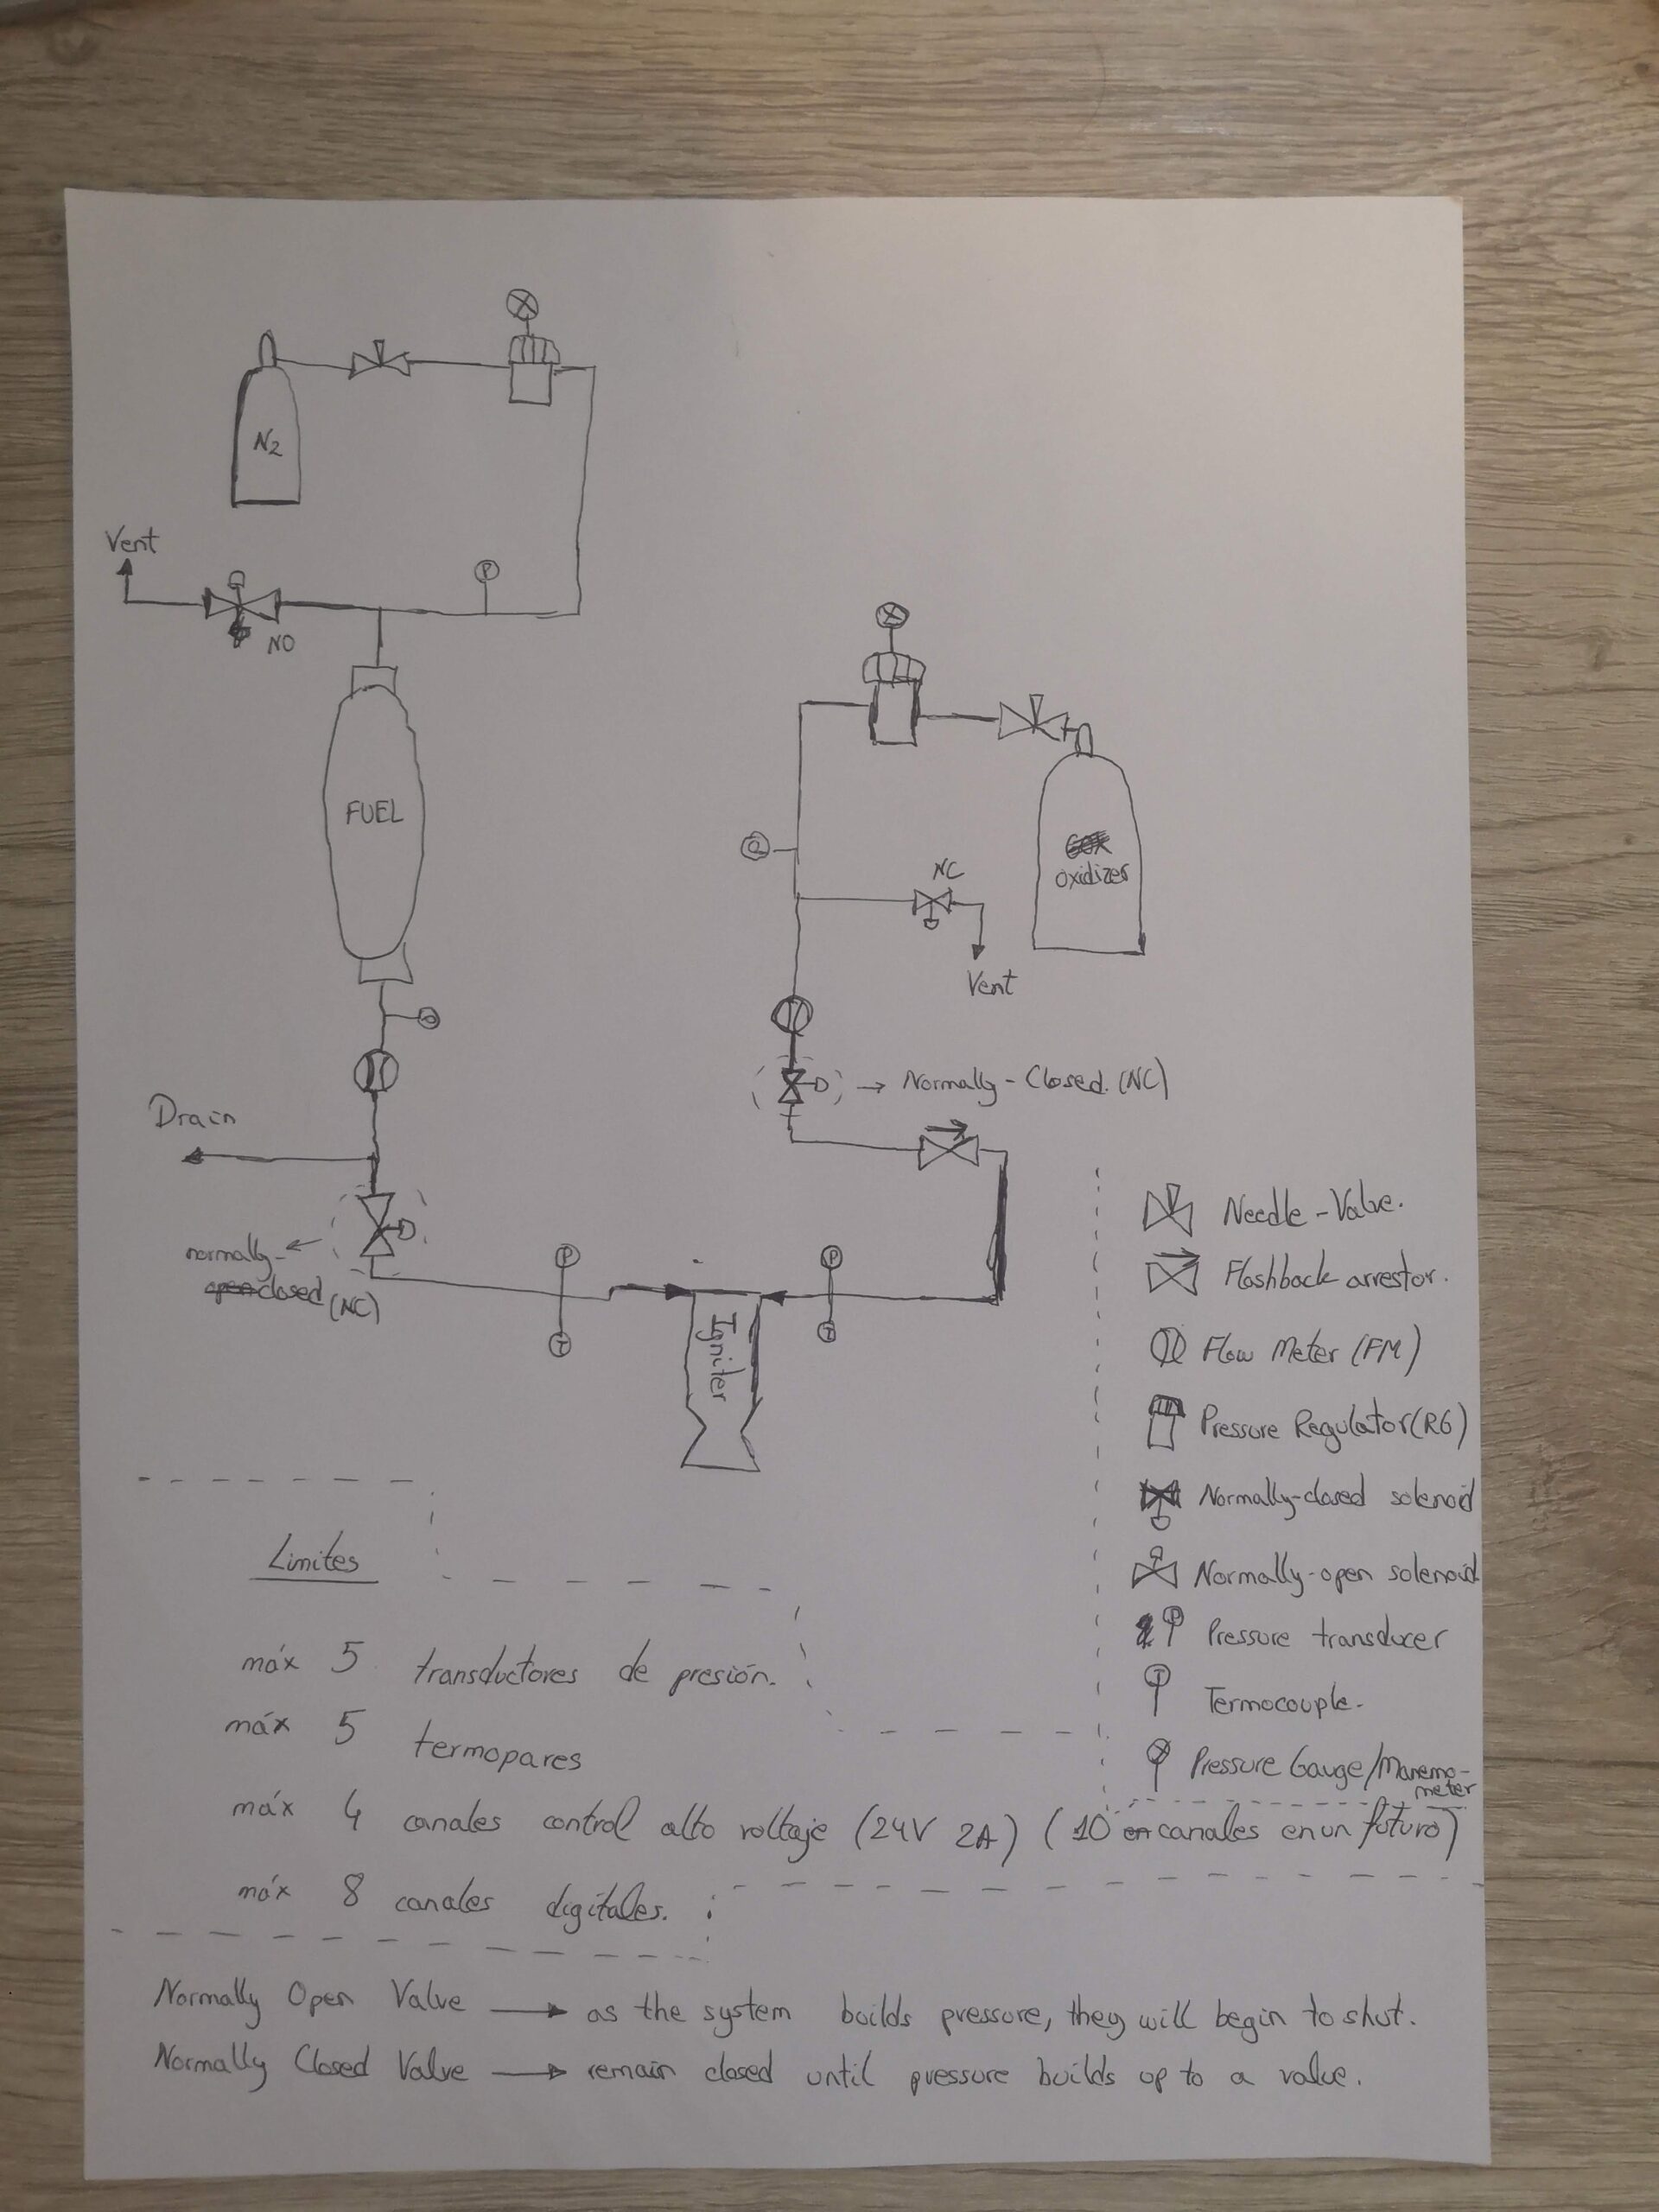 N2
Vent
NO
P
FUEL
P
NC
GOX
oxidizer
Vent
Normally-Closed. (NC)
Drain
normally-
open closed
(NC)
P
T
P
T
Igniter
Needle-Valve.
Flashback arrestor.
Flow Meter (FM)
Pressure Regulator (RG)
Normally-closed solenoid
Normally-open solenoid
P Pressure transducer
T Termocouple.
Pressure Gauge/Manemo-
meter
Limites
máx 5 transductores de presión.
máx 5 termopares
máx 4 canales control alto voltaje (24V 2A) (10 en canales en un futuro)
máx 8 canales digitales.
Normally Open Valve → as the system builds pressure, they will begin to shut.
Normally Closed Valve → remain closed until pressure builds up to a value.